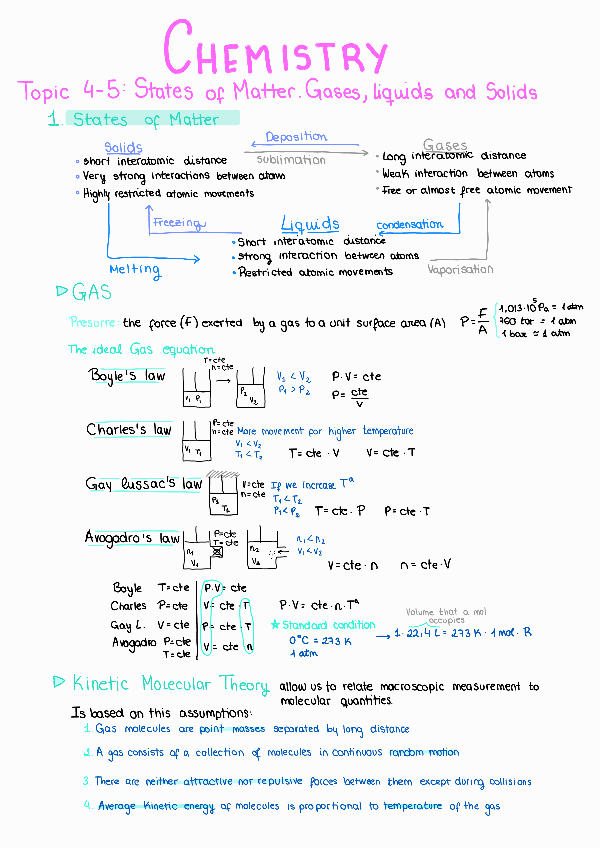 CHEMISTRY
Topic 4-5: States of Matter. Gases, liquids and Solids
1. States of Matter
Deposition
Solids
sublimation
Gases
• short interatomic distance
• Very strong interactions between atoms
• Highly restricted atomic movements
• Long interatomic distance
• Weak interaction between atoms
• Free or almost free atomic movement
Freezing
Liquids
condensation
• Short interatomic distance
• strong interaction between atoms
• Restricted atomic movements
Melting
Vaporisation
▷ GAS
Pressure: the force (F) exerted by a gas to a unit surface area (A) P = F/A
1,013·10⁵ Pa = 1 atm
760 tor = 1 atm
1 bar ≈ 1 atm
The ideal Gas equation
Boyle's law
T=cte
n=cte
V₁ P₁
P₂
V₂
V₁ < V₂
P₁ > P₂
P·V = cte
P = cte/V
Charles's law
V₁ T₁
P=cte
n=cte
More movement por higher temperature
V₁ < V₂
T₁ < T₂
T = cte · V
V = cte · T
Gay lussac's law
V=cte
n=cte
If we increase Tᵃ
T₁ < T₂
P₁ < P₂
T = cte · P
P = cte · T
Avogadro's law
n₁
V₁
P=cte
T=cte
n₂
V₂
n₁ < n₂
V₁ < V₂
V = cte · n
n = cte · V
Boyle T=cte P·V = cte
Charles P=cte V = cte · T
Gay L. V=cte P = cte · T
Avogadro P=cte
T=cte V = cte n
P·V = cte·n·Tᵃ
★ Standard condition
0°C = 273 K
1 atm
Volume that a mol
occupies
→ 1 · 22,4 L = 273 K · 1 mol · R
▷ Kinetic Molecular Theory allow us to relate macroscopic measurement to
molecular quantities.
Is based on this assumptions:
1. Gas molecules are point masses separated by long distance
2. A gas consists of a collection of molecules in continuous random motion
3. There are neither attractive nor repulsive forces between them except during collisions
4. Average Kinetic energy of molecules is proportional to temperature of the gas